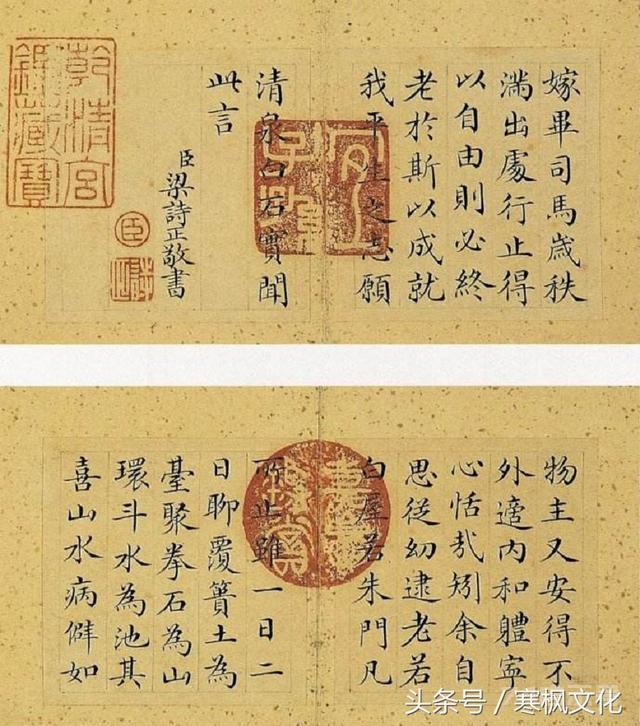 嫁畢司馬歲秩
滿出處行止得
以自由則必終
老於斯以成就
我平生之志願
清泉白石實聞
此言
臣梁詩正敬書
臣
乾清宮
鑑藏寶
物主又安得不
外適內和體寧
心恬哉矧余自
思從幼逮老若
白屋若朱門凡
所止雖一日二
日聊覆簣土為
臺聚拳石為山
環斗水為池其
喜山水病僻如
头条号／寒枫文化